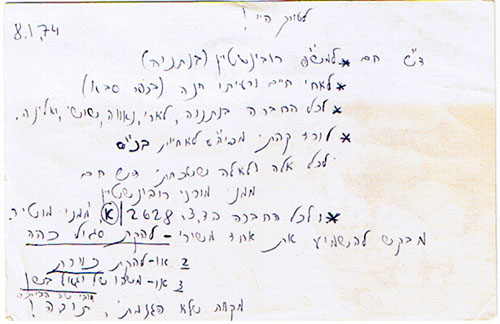 8.1.74
לשוק היי!
ד"ש חם * למשפ' רובינשטיין (בנתניה)
* לאחי חיים ורעיתי חנה (בכפר סבא)
* לכל החברה בנתניה, לארי, נאווה, שושי, ואילנה.
* לורד קהתי מביה"ס לאחיות בנ"ס
לכל אלה ולאלה ששכחתי דש חם
ממני מורני רובינשטיין
* ולכל החברה ב ד.צ. 2628/א' ממני מוטי ר.
מבקש להשמיע את אחד משירי - להקת סגול כהה
2 או - להקת כוורת
3 או - משהו של יגאל בשן
מקווה שלא הגזמתי, תודה!